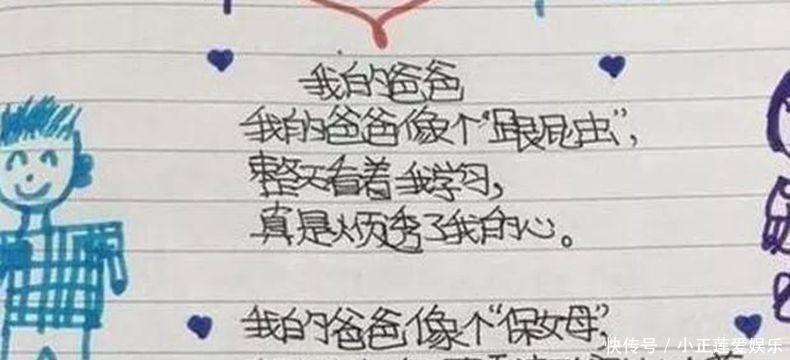 我的爸爸
我的爸爸像个“跟屁虫”,
整天看着我学习,
真是烦透了我的心。
我的爸爸像个“保女母”,
快传号 / 小正莲爱娱乐